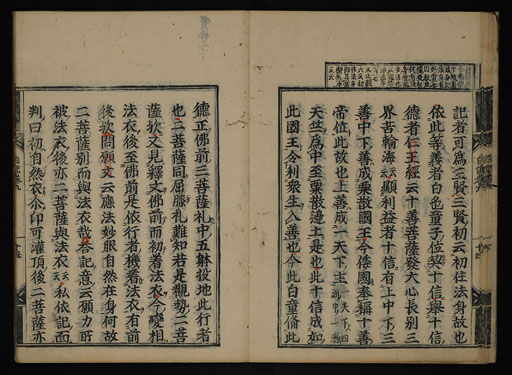 記者可爲三賢三賢初云初住法身故也
依此等義者白色童子位契十信舉十信
德者仁王經云十善菩薩發大心長別三
界苦輪海云云顯利益者十信有上中下三
善中下善成粟散國王今倭國奉稱十善
帝位此故也上善成一天下王
天竺爲中至粟散邊土是也此十信成如
此國王令利衆生入善也今此白童脩此
德正佛前三菩薩礼中五躰投地此行者
也二菩薩同屈膝礼難知若是觀勢二菩
薩欤又見釋文佛前而初着法衣今變相
法衣後至佛前是依行者機看法衣有前
後次問願文云應法妙服自然在身何故
二菩薩別而與法衣哉答記意云願力所
被法衣後亦二菩薩與法衣云云私依記面
判曰初自然衣尒印可灌頂後二菩薩亦